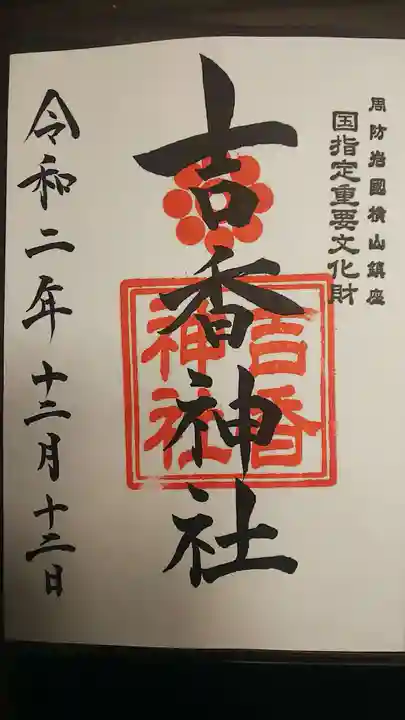 周防岩國横山鎮座
国指定重要文化財
吉香神社
吉香
神社
令和二年十二月十二日